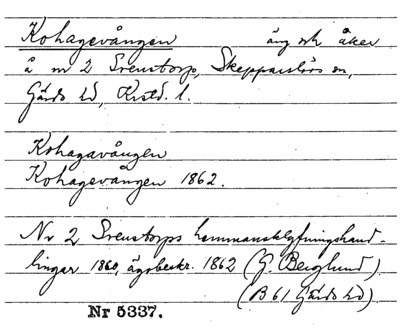 Kohagevången äng och åker
å nr 2 Svenstorp, Skepparslövs sn,
Gärds hd, Krstd. l.
Kohagavången
Kohagevången 1862.
Nr 2 Svenstorps hemmansklyfningshand-
lingar 1860, ägobeskr. 1862 (G. Berglund)
(B 61 Gärds hd)
Nr 5337.